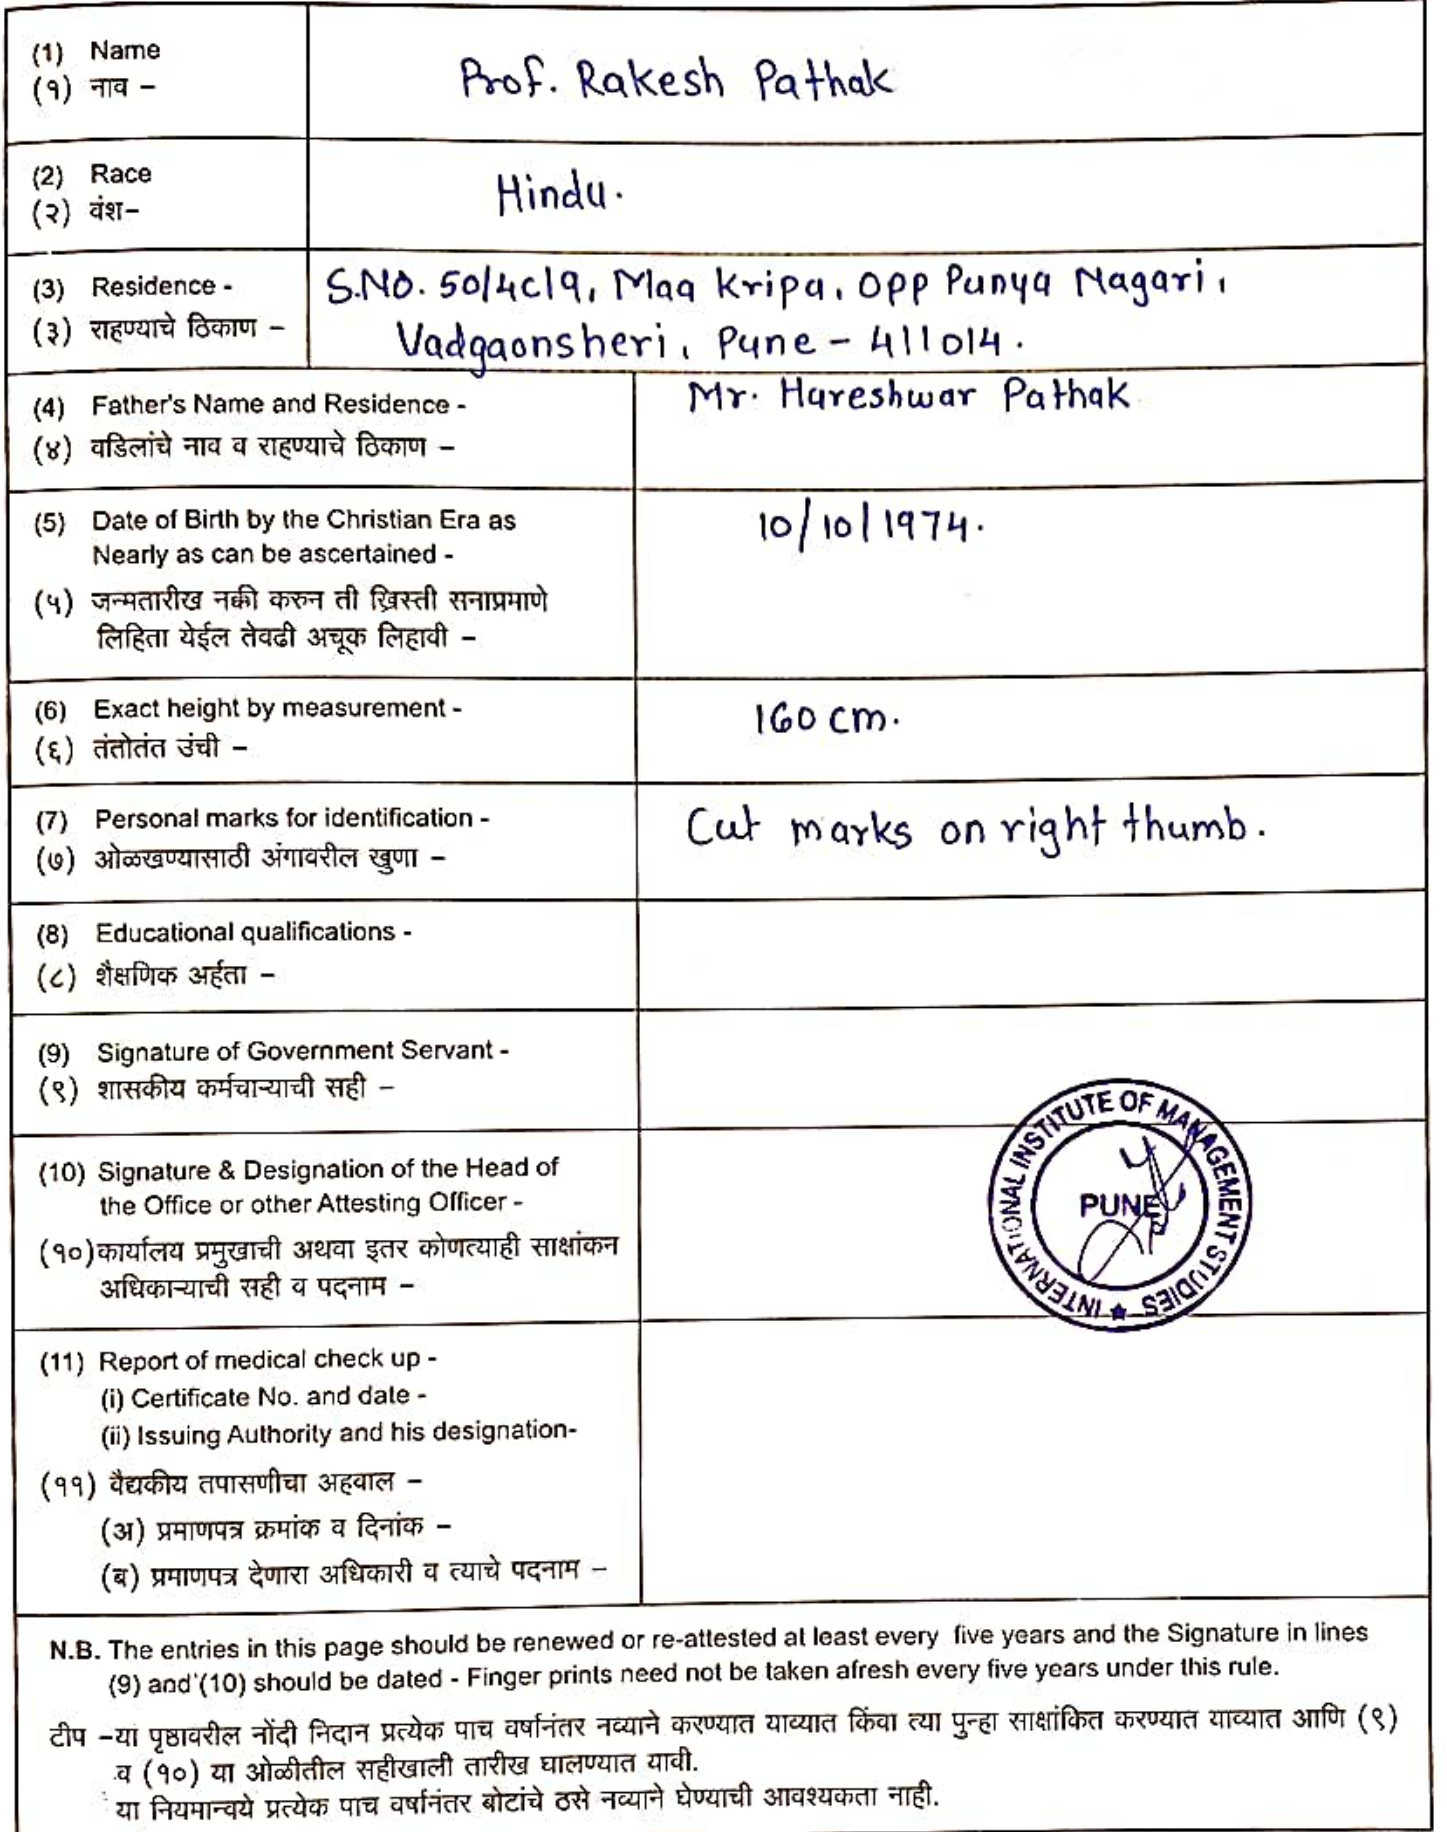 (1) Name
(१) नाव –
Prof. Rakesh Pathak
(2) Race
(२) वंश–
Hindu.
(3) Residence -
(३) राहण्याचे ठिकाण –
S.NO. 50/4c/9, Maa Kripa, Opp Punya Nagari,
Vadgaonsheri, Pune - 411014.
(4) Father's Name and Residence -
(४) वडिलांचे नाव व राहण्याचे ठिकाण –
Mr. Hareshwar Pathak
(5) Date of Birth by the Christian Era as
Nearly as can be ascertained -
(५) जन्मतारीख नक्की करुन ती ख्रिस्ती सनाप्रमाणे
लिहिता येईल तेवढी अचूक लिहावी –
10/10/1974.
(6) Exact height by measurement -
(६) तंतोतंत उंची –
160 cm.
(7) Personal marks for identification -
(७) ओळखण्यासाठी अंगावरील खुणा –
Cut marks on right thumb.
(8) Educational qualifications -
(८) शैक्षणिक अर्हता –
(9) Signature of Government Servant -
(९) शासकीय कर्मचाऱ्याची सही –
(10) Signature & Designation of the Head of
the Office or other Attesting Officer -
(१०) कार्यालय प्रमुखाची अथवा इतर कोणत्याही साक्षांकन
अधिकाऱ्याची सही व पदनाम –
INTERNATIONAL INSTITUTE OF MANAGEMENT STUDIES ★
PUNE
(11) Report of medical check up -
(i) Certificate No. and date -
(ii) Issuing Authority and his designation-
(११) वैद्यकीय तपासणीचा अहवाल –
(अ) प्रमाणपत्र क्रमांक व दिनांक –
(ब) प्रमाणपत्र देणारा अधिकारी व त्याचे पदनाम –
N.B. The entries in this page should be renewed or re-attested at least every five years and the Signature in lines
(9) and (10) should be dated - Finger prints need not be taken afresh every five years under this rule.
टीप –या पृष्ठावरील नोंदी निदान प्रत्येक पाच वर्षानंतर नव्याने करण्यात याव्यात किंवा त्या पुन्हा साक्षांकित करण्यात याव्यात आणि (९)
व (१०) या ओळीतील सहीखाली तारीख घालण्यात यावी.
या नियमान्वये प्रत्येक पाच वर्षानंतर बोटांचे ठसे नव्याने घेण्याची आवश्यकता नाही.